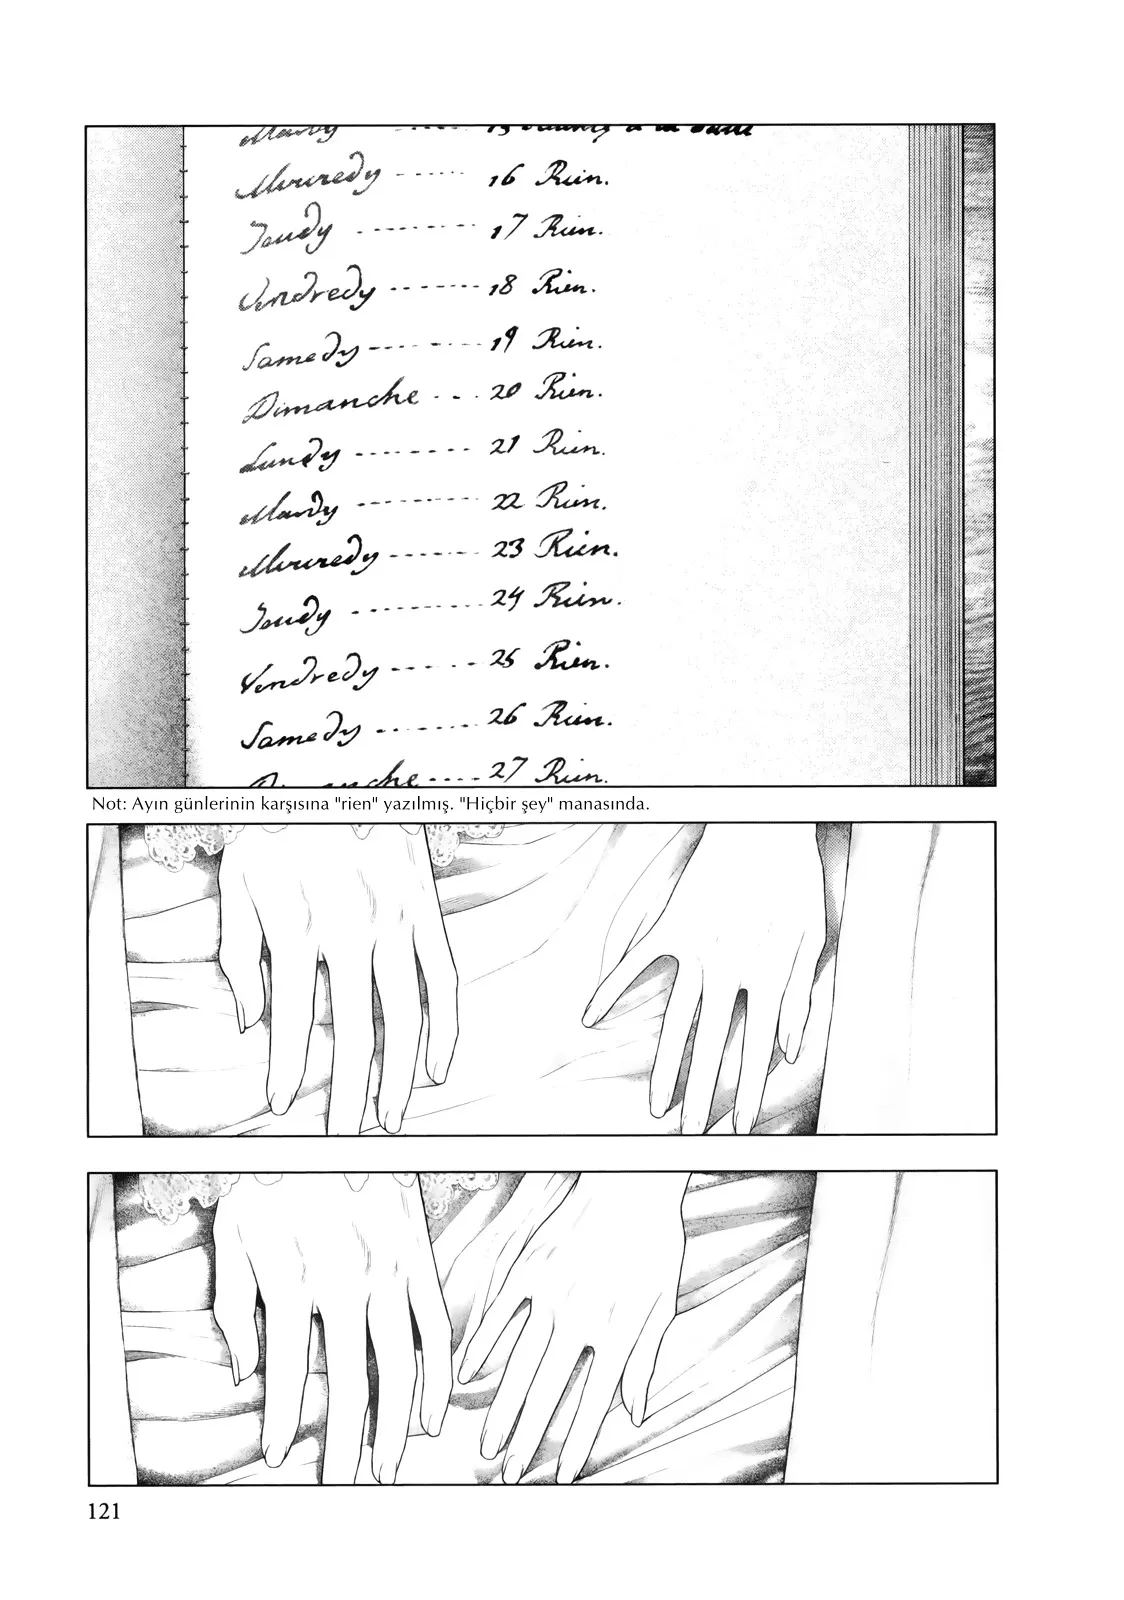 Mardy ---- 15
Mercredy ------ 16 Rien.
Jeudy --------- 17 Rien.
Vendredy ------- 18 Rien.
Samedy -------- 19 Rien.
Dimanche --- 20 Rien.
Lundy -------- 21 Rien.
Mardy --------- 22 Rien.
Mercredy ------ 23 Rien.
Jeudy --------- 24 Rien.
Vendredy ------ 25 Rien.
Samedy ------- 26 Rien.
Dimanche ---- 27 Rien.
Not: Ayın günlerinin karşısına "rien" yazılmış. "Hiçbir şey" manasında.
121